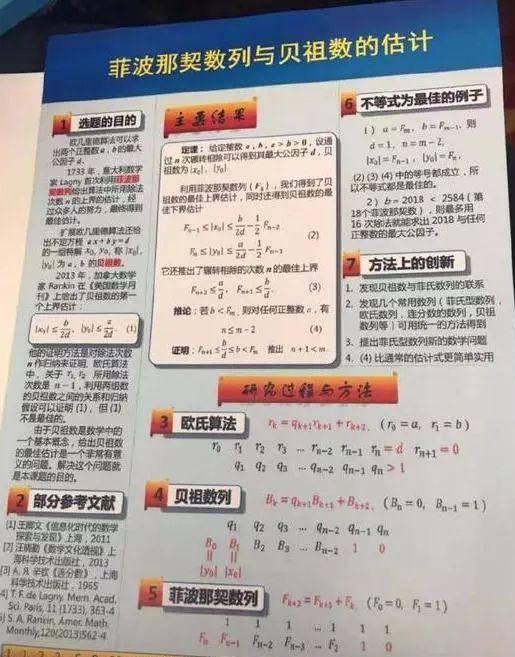 菲波那契数列与贝祖数的估计
1 选题的目的
欧几里德算法可以求
出两个正整数 a, b 的最大
公因子 d.
1733 年, 意大利数学
家 Lagny 首次利用菲波那
契数列给出算法中所用除法
次数 n 的上界的估计, 经
过众多人的努力, 最终得到
最佳估计.
扩展欧几里德算法还给
出不定方程 ax + by = d
的一组特解 x₀, y₀, 称 |x₀|,
|y₀| 为 a, b 的贝祖数.
2013 年, 加拿大数学
家 Rankin 在《美国数学月
刊》上给出了贝祖数的第一
个上界估计:
|x₀| ≤ b/2d, |y₀| ≤ a/2d. (1)
他的证明方法是对除法次数
n 作归纳来证明. 欧几里德算法
中, 关于 r₁, r₂ 所用除法
次数是 n − 1, 利用两组数
的贝祖数之间的关系和归纳
假设可以证明 (1), 但 (1)
不是最佳的.
由于贝祖数是数学中的
一个基本概念, 给出贝祖数
的最佳估计是一个非常有意
义的问题. 解决这个问题就
是本课题的目的.
2 部分参考文献
[1] 王卿文《信息化时代的数学
探索与发现》上海, 2011
《数学文化透视》上
海科学技术出版社, 2013
[3] A. Я. 辛钦《连分数》, 上海
科学技术出版社, 1965
4] T. F. de Lagny. Mem. Acad.
Sci. Paris, 11 (1733), 363-4
5] S. A. Rankin, Amer. Math.
Monthly,120(2013)562-4
主要结果
定理: 给定整数 a, b, a > b > 0, 设通
过 n 次辗转相除可以得到其最大公因子 d, 贝
祖数为 |x₀|, |y₀|.
利用菲波那契数列 {Fₖ}, 我们得到了贝
祖数的最佳上界估计, 同时还得到贝祖数的最
佳下界估计
Fₙ₋₁ ≤ |x₀| ≤ b/2d − 1/2 Fₙ₋₂
(2)
Fₙ ≤ |y₀| ≤ a/2d − 1/2 Fₙ₋₁
它还推出了辗转相除的次数 n 的最佳上界
Fₙ₊₂ ≤ a/d, Fₙ₊₁ ≤ b/d. (3)
推论: 若 b < Fₘ, 则对任何正整数 a, 有
n ≤ m − 2 (4)
证明: Fₙ₊₁ ≤ b/d ≤ b < Fₘ 推出 n + 1 < m.
6 不等式为最佳的例子
1) a = Fₘ, b = Fₘ₋₁, 则
d = 1, n = m − 2,
|x₀| = Fₙ₋₁, |y₀| = Fₙ,
(2) (3) (4) 中的等号都成立, 所
以不等式都是最佳的.
2) b = 2018 < 2584 (第
18个菲波那契数), 则最多用
16 次除法就能求出 2018 与任何
正整数的最大公因子.
7 方法上的创新
1. 发现贝祖数与菲氏数列的联系
2. 发现几个常用数列 (菲氏型数列,
欧氏数列, 连分数的数列, 贝祖
数列等) 可用统一的方法得到
3. 提出菲氏型数列新的数学问题
4. (4) 比通常的估计式更简单实用
研究过程与方法
3 欧氏算法 rₖ = qₖ₊₁rₖ₊₁ + rₖ₊₂, (r₀ = a, r₁ = b)
r₀ r₁ r₂ r₃ ... rₙ₋₂ rₙ₋₁ rₙ = d rₙ₊₁ = 0
q₁ q₂ q₃ ... qₙ₋₂ qₙ₋₁ qₙ > 1
4 贝祖数列 Bₖ = qₖ₊₁Bₖ₊₁ + Bₖ₊₂, (Bₙ = 0, Bₙ₋₁ = 1)
q₁ q₂ q₃ ... qₙ₋₂ qₙ₋₁ qₙ
B₀ B₁ B₂ B₃ ... Bₙ₋₂ 1 0
|| ||
|y₀| |x₀|
5 菲波那契数列 Fₖ₊₂ = Fₖ₊₁ + Fₖ, (F₀ = 0, F₁ = 1)
1 1 1 ... 1 1 1
Fₙ Fₙ₋₁ Fₙ₋₂ Fₙ₋₃ ... F₂ 1 0